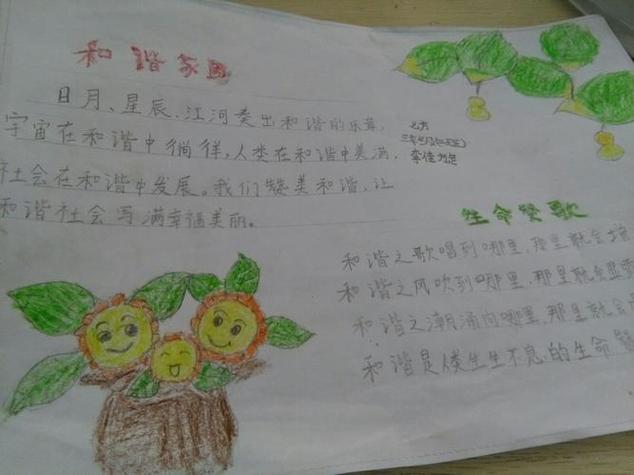 和谐家园
日月、星辰、江河奏出和谐的乐章,
宇宙在和谐中徜徉,人类在和谐中美满,
社会在和谐中发展。我们赞美和谐,让
和谐社会写满幸福美丽。
生命赞歌
和谐之歌唱到哪里,那里就会
和谐之风吹到哪里,那里就会
和谐之潮涌向哪里,那里就会
和谐是人类生生不息的生命